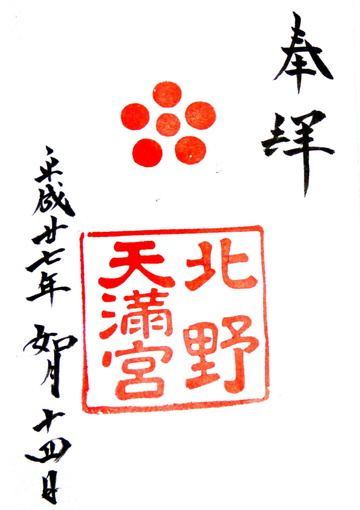 奉拝
北野
天満宮
平成廿七年 如月 十四日